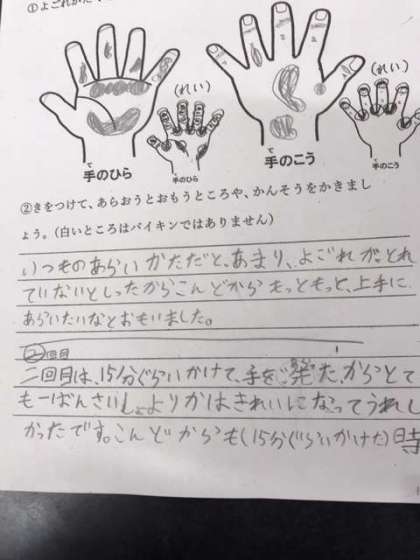 ①よごれがた
(れい)
(れい)
手のひら
て
手のひら
手のこう
て
手のこう
②きをつけて、あらおうとおもうところや、かんそうをかきまし
ょう。(白いところはバイキンではありません)
いつものあらいかただと、あまり、よごれが、とれ
ていないとしったからこんどからもっともっと、上手に
あらいたいなとおもいました。
②回目
二回目は、15分ぐらいかけて、手を発た。からとて
も一ばんさいしょよりかはきれいになってうれし
かったです。こんどからも(15分ぐらいかけた)時